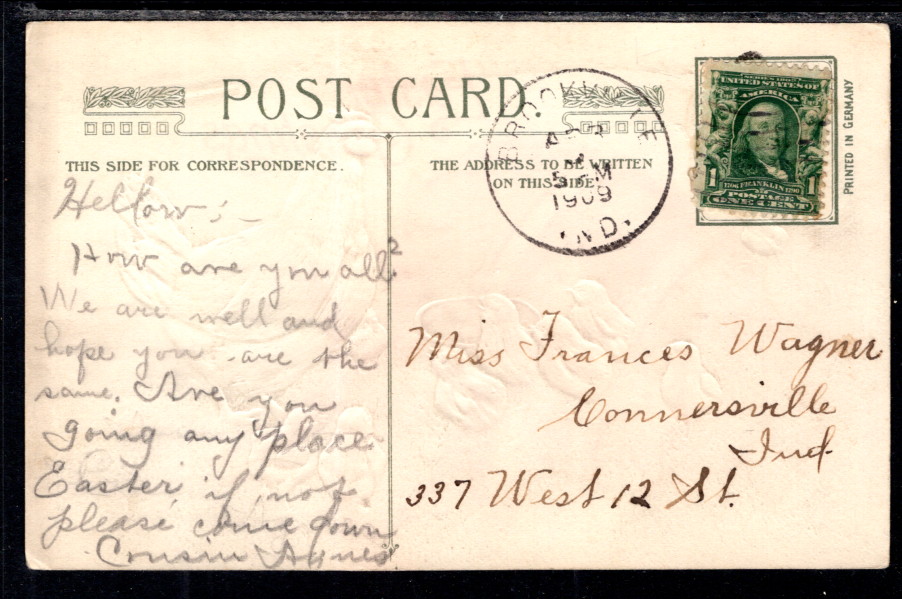 POST CARD.
THIS SIDE FOR CORRESPONDENCE.
THE ADDRESS TO BE WRITTEN
ON THIS SIDE
BROOKVILLE
APR
5 M
1909
IND.
SERIES 1902
UNITED STATES OF
AMERICA
1 1706 FRANKLIN 1790 1
POSTAGE
ONE CENT
PRINTED IN GERMANY
Hellow;-
How are you all?
We are well and
hope you are the
same. Are you
going any place
Easter, if not
please come down
Cousin Agnes
Miss Frances Wagner
Connersville
Ind
337 West 12 St.